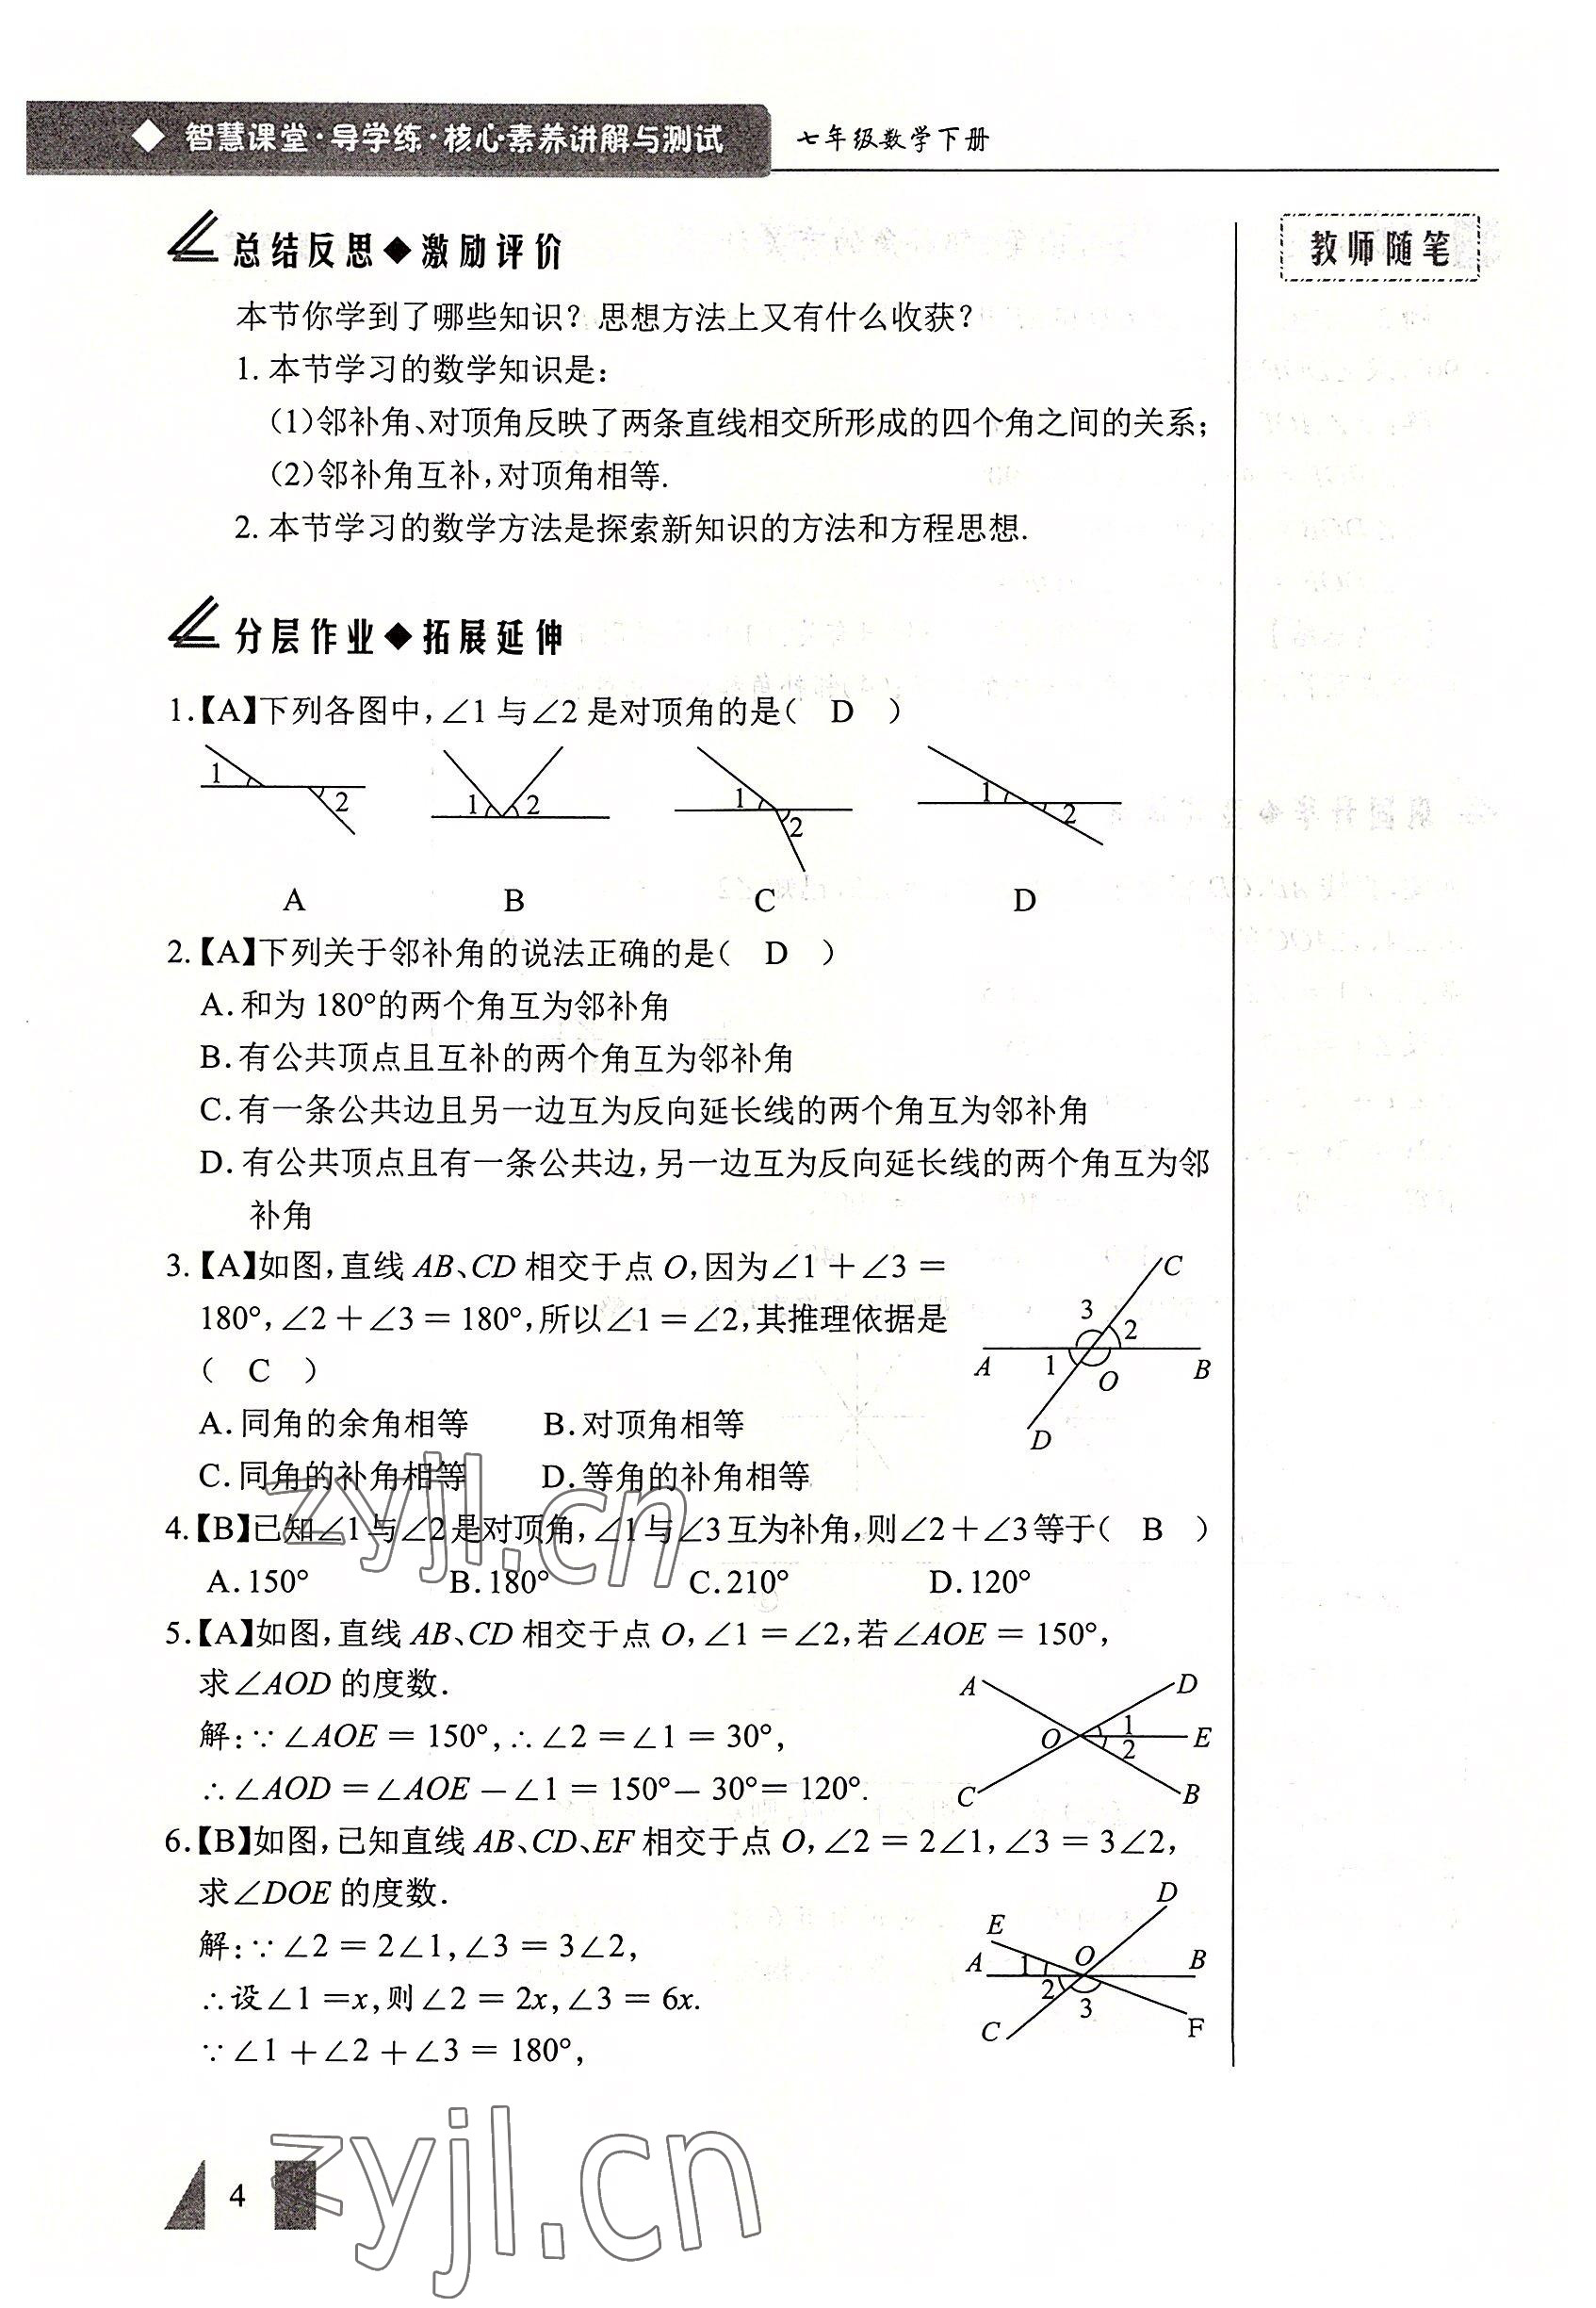 智慧课堂·导学练·核心素养讲解与测试 七年级数学下册
总结反思◆激励评价
教师随笔
本节你学到了哪些知识？思想方法上又有什么收获？
1. 本节学习的数学知识是：
(1)邻补角、对顶角反映了两条直线相交所形成的四个角之间的关系；
(2)邻补角互补，对顶角相等.
2. 本节学习的数学方法是探索新知识的方法和方程思想.
分层作业◆拓展延伸
1.【A】下列各图中，∠1与∠2是对顶角的是( D )
1 2 1 2 1 2 1 2
A B C D
2.【A】下列关于邻补角的说法正确的是( D )
A. 和为180°的两个角互为邻补角
B. 有公共顶点且互补的两个角互为邻补角
C. 有一条公共边且另一边互为反向延长线的两个角互为邻补角
D. 有公共顶点且有一条公共边，另一边互为反向延长线的两个角互为邻
补角
3.【A】如图，直线AB、CD相交于点O，因为∠1＋∠3＝
180°，∠2＋∠3＝180°，所以∠1＝∠2，其推理依据是
( C )
C 3 2 A 1 O B D
A. 同角的余角相等 B. 对顶角相等
C. 同角的补角相等 D. 等角的补角相等
4.【B】已知∠1与∠2是对顶角，∠1与∠3互为补角，则∠2＋∠3等于( B )
A. 150° B. 180° C. 210° D. 120°
5.【A】如图，直线AB、CD相交于点O，∠1＝∠2，若∠AOE＝150°，
求∠AOD的度数.
解：∵∠AOE＝150°，∴∠2＝∠1＝30°，
∴∠AOD＝∠AOE－∠1＝150°－30°＝120°.
A D O 1 2 E C B
6.【B】如图，已知直线AB、CD、EF相交于点O，∠2＝2∠1，∠3＝3∠2，
求∠DOE的度数.
解：∵∠2＝2∠1，∠3＝3∠2，
∴设∠1＝x，则∠2＝2x，∠3＝6x.
∵∠1＋∠2＋∠3＝180°，
D E O A 1 B 2 3 C F
zyjl.cn
zyjl.cn
4